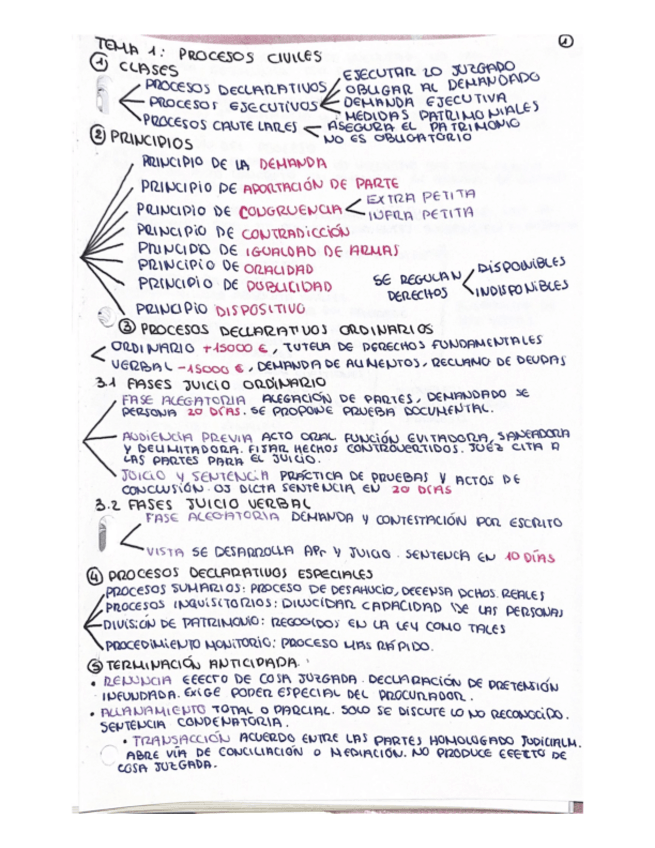 TEMA 1: PROCESOS CIVILES
1
① CLASES
PROCESOS DECLARATIVOS
PROCESOS EJECUTIVOS
EJECUTAR LO JUZGADO
OBLIGAR AL DEMANDADO
DEMANDA EJECUTIVA
MEDIDAS PATRIMONIALES
PROCESOS CAUTELARES
ASEGURA EL PATRIMONIO
NO ES OBLIGATORIO
② PRINCIPIOS
PRINCIPIO DE LA DEMANDA
PRINCIPIO DE APORTACIÓN DE PARTE
PRINCIPIO DE CONGRUENCIA
EXTRA PETITA
INFRA PETITA
PRINCIPIO DE CONTRADICCIÓN
PRINCIPIO DE IGUALDAD DE ARMAS
PRINCIPIO DE ORALIDAD
PRINCIPIO DE PUBLICIDAD
PRINCIPIO DISPOSITIVO
SE REGULAN
DERECHOS
DISPONIBLES
INDISPONIBLES
③ PROCESOS DECLARATIVOS ORDINARIOS
ORDINARIO +15000 €, TUTELA DE DERECHOS FUNDAMENTALES
VERBAL -15000 €, DEMANDA DE ALIMENTOS, RECLAMO DE DEUDAS
3.1 FASES JUICIO ORDINARIO
FASE ALEGATORIA ALEGACIÓN DE PARTES, DEMANDADO SE
PERSONA 20 DÍAS. SE PROPONE PRUEBA DOCUMENTAL.
AUDIENCIA PREVIA ACTO ORAL FUNCIÓN EVITADORA, SANEADORA
Y DELIMITADORA. FIJAR HECHOS CONTROVERTIDOS. JUEZ CITA A
LAS PARTES PARA EL JUICIO.
JUICIO Y SENTENCIA PRÁCTICA DE PRUEBAS Y ACTOS DE
CONCLUSIÓN. OJ DICTA SENTENCIA EN 20 DÍAS
3.2 FASES JUICIO VERBAL
FASE ALEGATORIA DEMANDA Y CONTESTACIÓN POR ESCRITO
VISTA SE DESARROLLA AP. Y JUICIO. SENTENCIA EN 10 DÍAS
④ PROCESOS DECLARATIVOS ESPECIALES
PROCESOS SUMARIOS: PROCESO DE DESAHUCIO, DEFENSA DCHOS. REALES
PROCESOS INQUISITORIOS: DILUCIDAR CAPACIDAD DE LAS PERSONAS
DIVISIÓN DE PATRIMONIO: RECOGIDOS EN LA LEY COMO TALES
PROCEDIMIENTO MONITORIO: PROCESO MAS RÁPIDO.
⑤ TERMINACIÓN ANTICIPADA.
• RENUNCIA EFECTO DE COSA JUZGADA. DECLARACIÓN DE PRETENSIÓN
INFUNDADA. EXIGE PODER ESPECIAL DEL PROCURADOR.
• ALLANAMIENTO TOTAL O PARCIAL. SOLO SE DISCUTE LO NO RECONOCIDO.
SENTENCIA CONDENATORIA.
• TRANSACCIÓN ACUERDO ENTRE LAS PARTES HOMOLOGADO JUDICIALM.
ABRE VÍA DE CONCILIACIÓN O MEDIACIÓN. NO PRODUCE EFECTO DE
COSA JUZGADA.